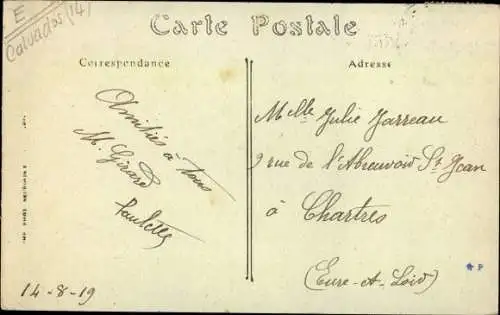 E
Calvados (14)
Carte Postale
Correspondance
Adresse
Amitiés à tous
M. Girard
Paulette
14-8-19
Melle Julie Jarreau
9 rue de l'Abreuvoir St Jean
à Chartres
(Eure-et-Loir)